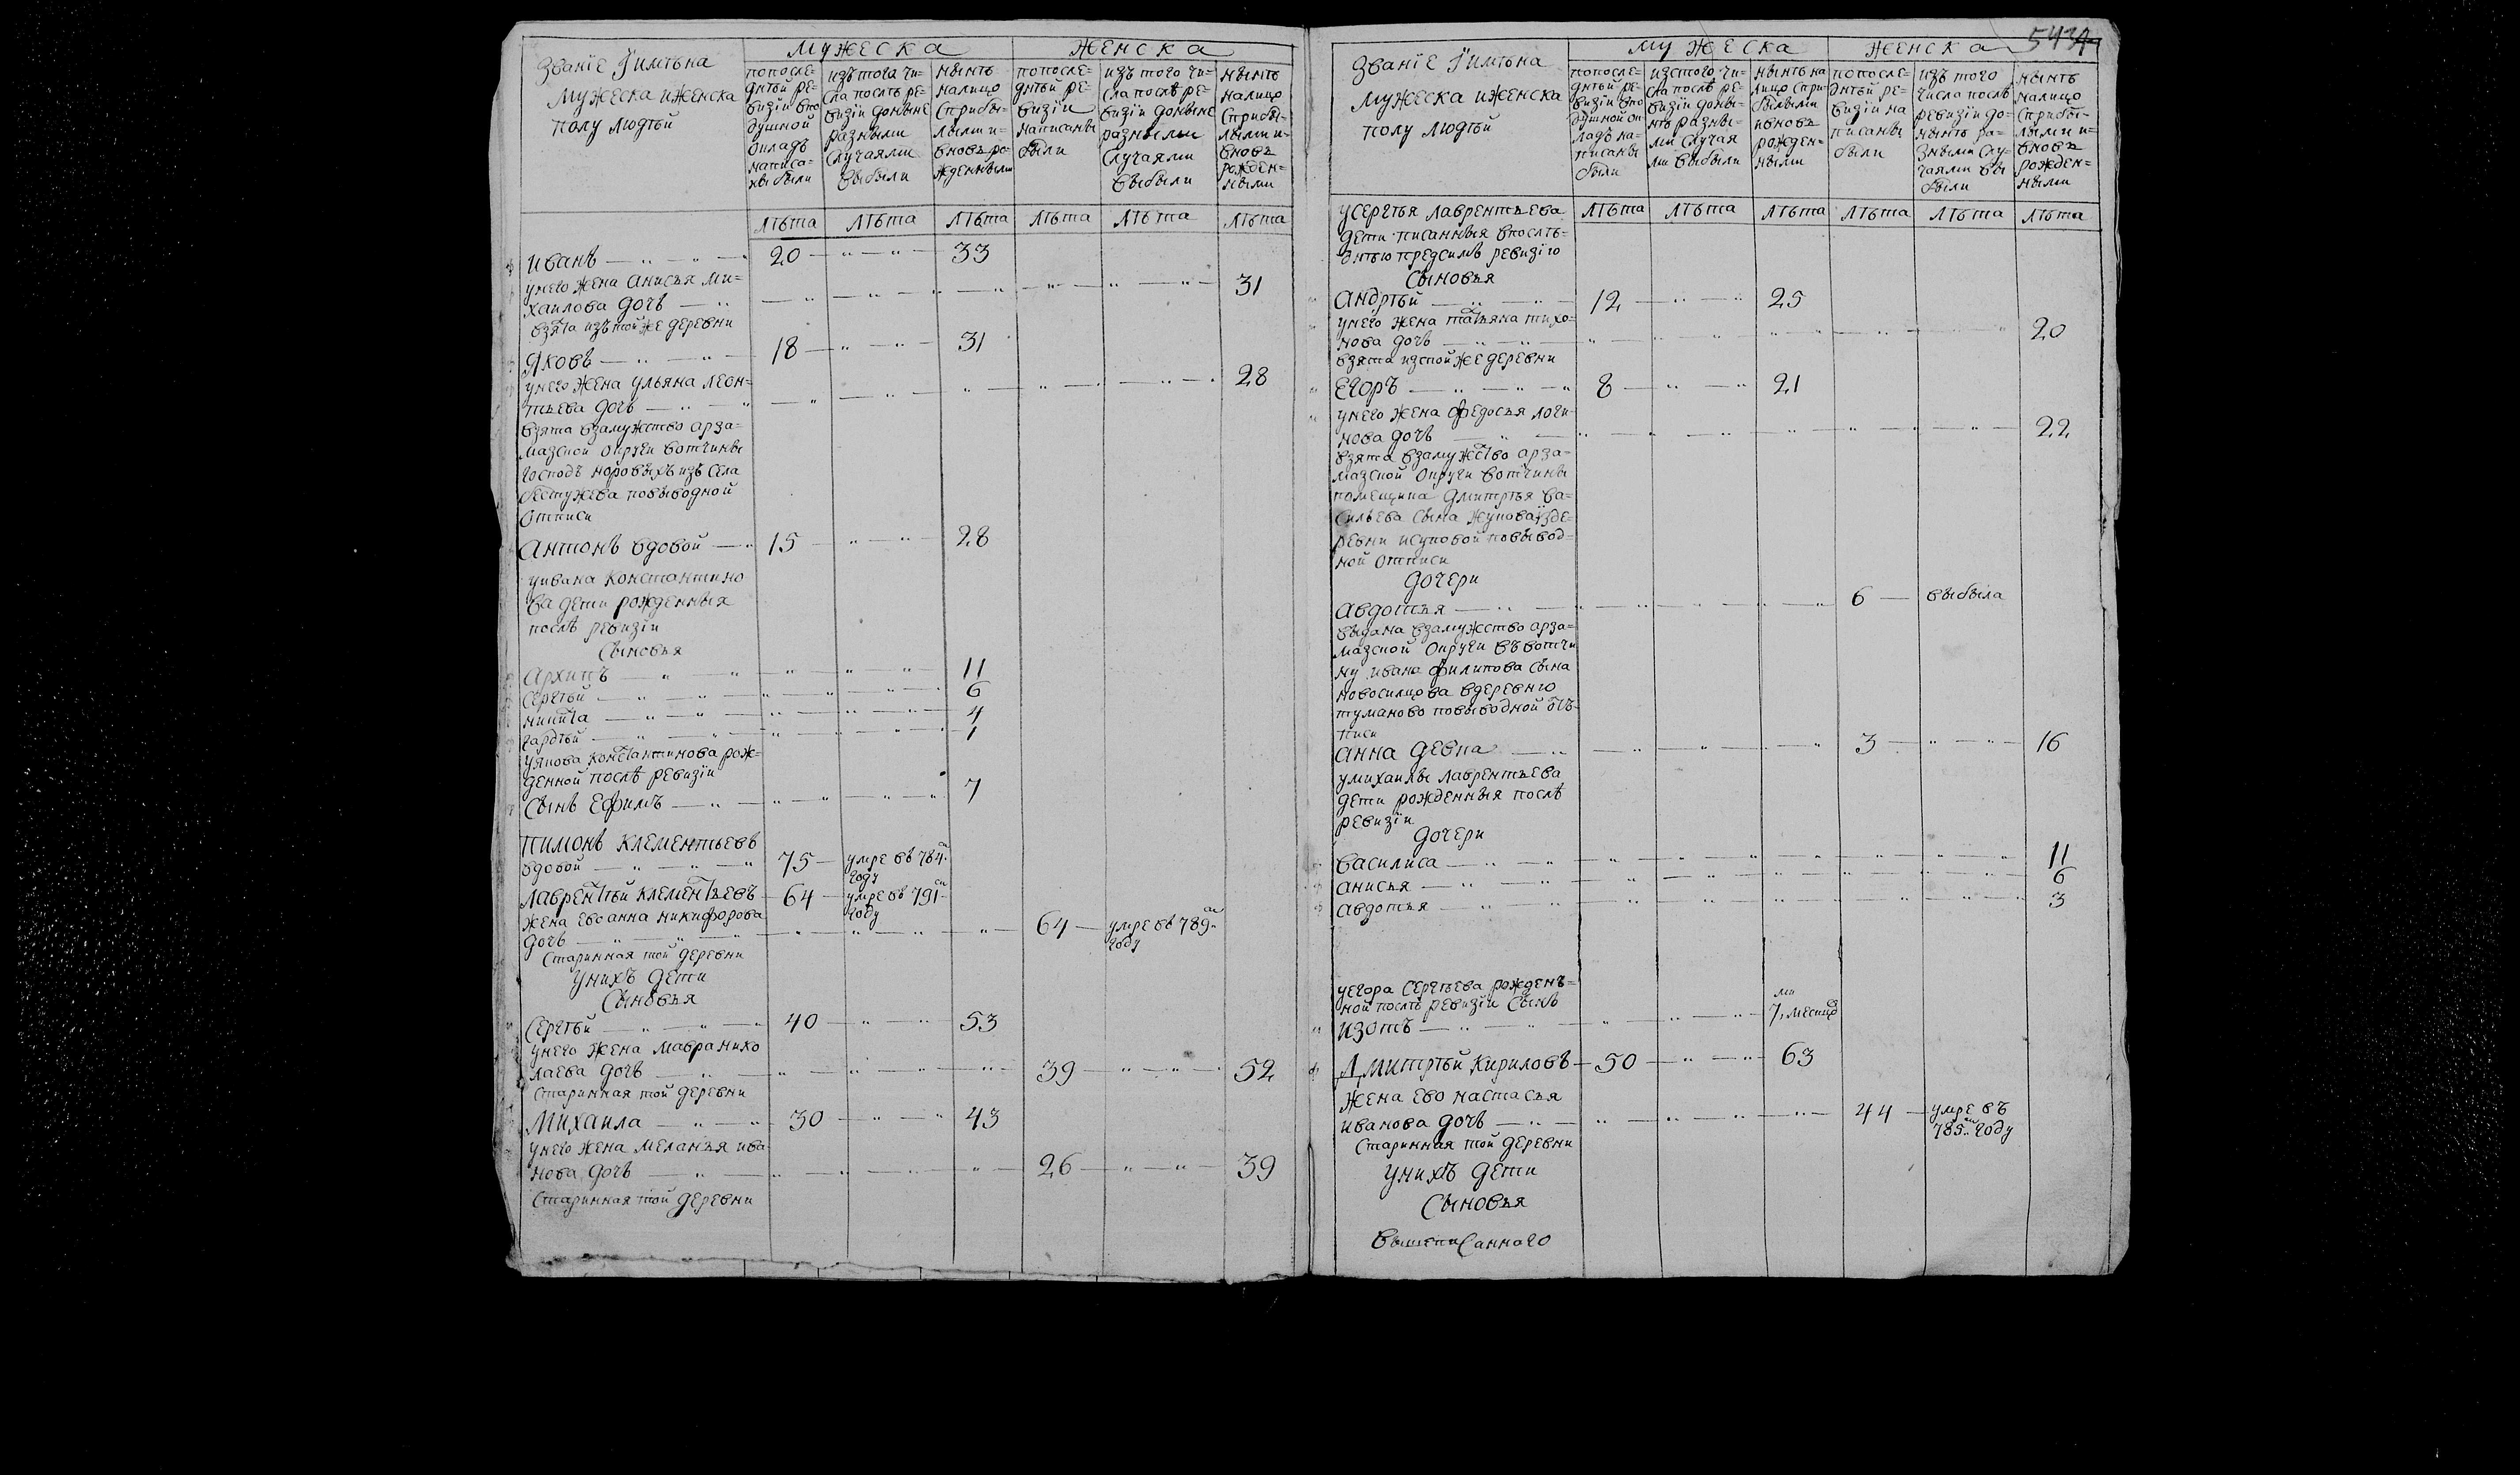 Званiе Iимѣна
мужеска иженска
полу людѣй
мужеска
женска
попосле=
днѣй ре=
визiи впо
душной
окладъ
написа=
ны были
изътого чи=
сла послѣ ре=
визiи доныне
разными
случаями
выбыли
нынѣ
налицо
сприбы=
лыми и=
вновь ро=
жденными
попосле=
днѣй ре=
визiи
написаны
были
изъ того чи=
сла послѣ ре=
визiи доныне
разными
случаями
выбыли
нынѣ
налицо
сприбы=
лыми и=
вновь
рожден=
ными
лѣта лѣта лѣта лѣта лѣта лѣта
иванъ 20 33
унего жена анисья ми=
хаилова дочь 31
взята изътойже деревни
яковъ 18 31
унего жена ульяна леон=
тьева дочь 28
взята взамужство арза=
маской округи вотчины
господъ норовыхъ изъ села
бестужева повыводной
отписи
антонъ вдовой 15 28
уивана константино
ва дети рожденныя
послѣ ревизiи
сыновья
архипъ 11
сергѣй 6
никита 4
гордѣй 1
уякова константинова рож=
денной послѣ ревизiи
сынъ ефимъ 7
пимонъ клементьевъ
вдовой 75 умре въ 784м
году
лаврентѣй клементьевъ 64 умре въ 791м
году
жена ево анна никифорова
дочь 64 умре въ 789м
году
старинная той деревни
унихъ дети
сыновья
сергѣй 40 53
унего жена мавра нико
лаева дочь 39 52
старинная той деревни
михаила 30 43
унего жена меланья ива
нова дочь 26 39
старинная той деревни
543
Званiе Iимѣна
мужеска иженска
полу людѣй
мужеска
женска
попосле=
днѣй ре=
визiи впо
душной ок
ладъ на=
писаны
были
изтого чи=
сла послѣ ре=
визiи доны=
нѣ разны=
ми случая
ми выбыли
нынѣ на
лицо спри
былыми
ивновь
рожден=
ными
попосле=
днѣй ре=
визiи на
писаны
были
изъ того
числа послѣ
ревизiи до=
нынѣ ра=
зными слу=
чаями вы
были
нынѣ
налицо
сприбы=
лыми и=
вновь
рожден=
ными
лѣта лѣта лѣта лѣта лѣта лѣта
усергѣя лаврентьева
дети писанныя впослѣ=
днѣю предсимъ ревизiю
сыновья
андрѣй 12 25
унего жена татьяна тихо=
нова дочь 20
взята изтойже деревни
егоръ 8 21
унего жена федосья логи=
нова дочь 22
взята взамужство арза=
маской округи вотчины
помещика дмитрѣя ва=
сильева сына жукова изде=
ревни исуповой повывод=
ной отписи
дочери
авдотья 6 выбыла
выдана взамужство арза=
маской округи въ вотчи
ну ивана филипова сына
новосилцова вдеревню
туманово повыводной отъ=
писи
анна девка 3 16
умихаилы лаврентьева
дети рожденныя послѣ
ревизiи
дочери
василиса 11
анисья 6
авдотья 3
уегора сергѣева рожденъ=
ной послѣ ревизiи сынъ
изотъ 7ми месяцъ
дмитрѣй кириловъ 50 63
жена ево настасья
иванова дочь 44 умре въ
785м году
старинная той деревни
унихъ дети
сыновья
вышеписаннаго